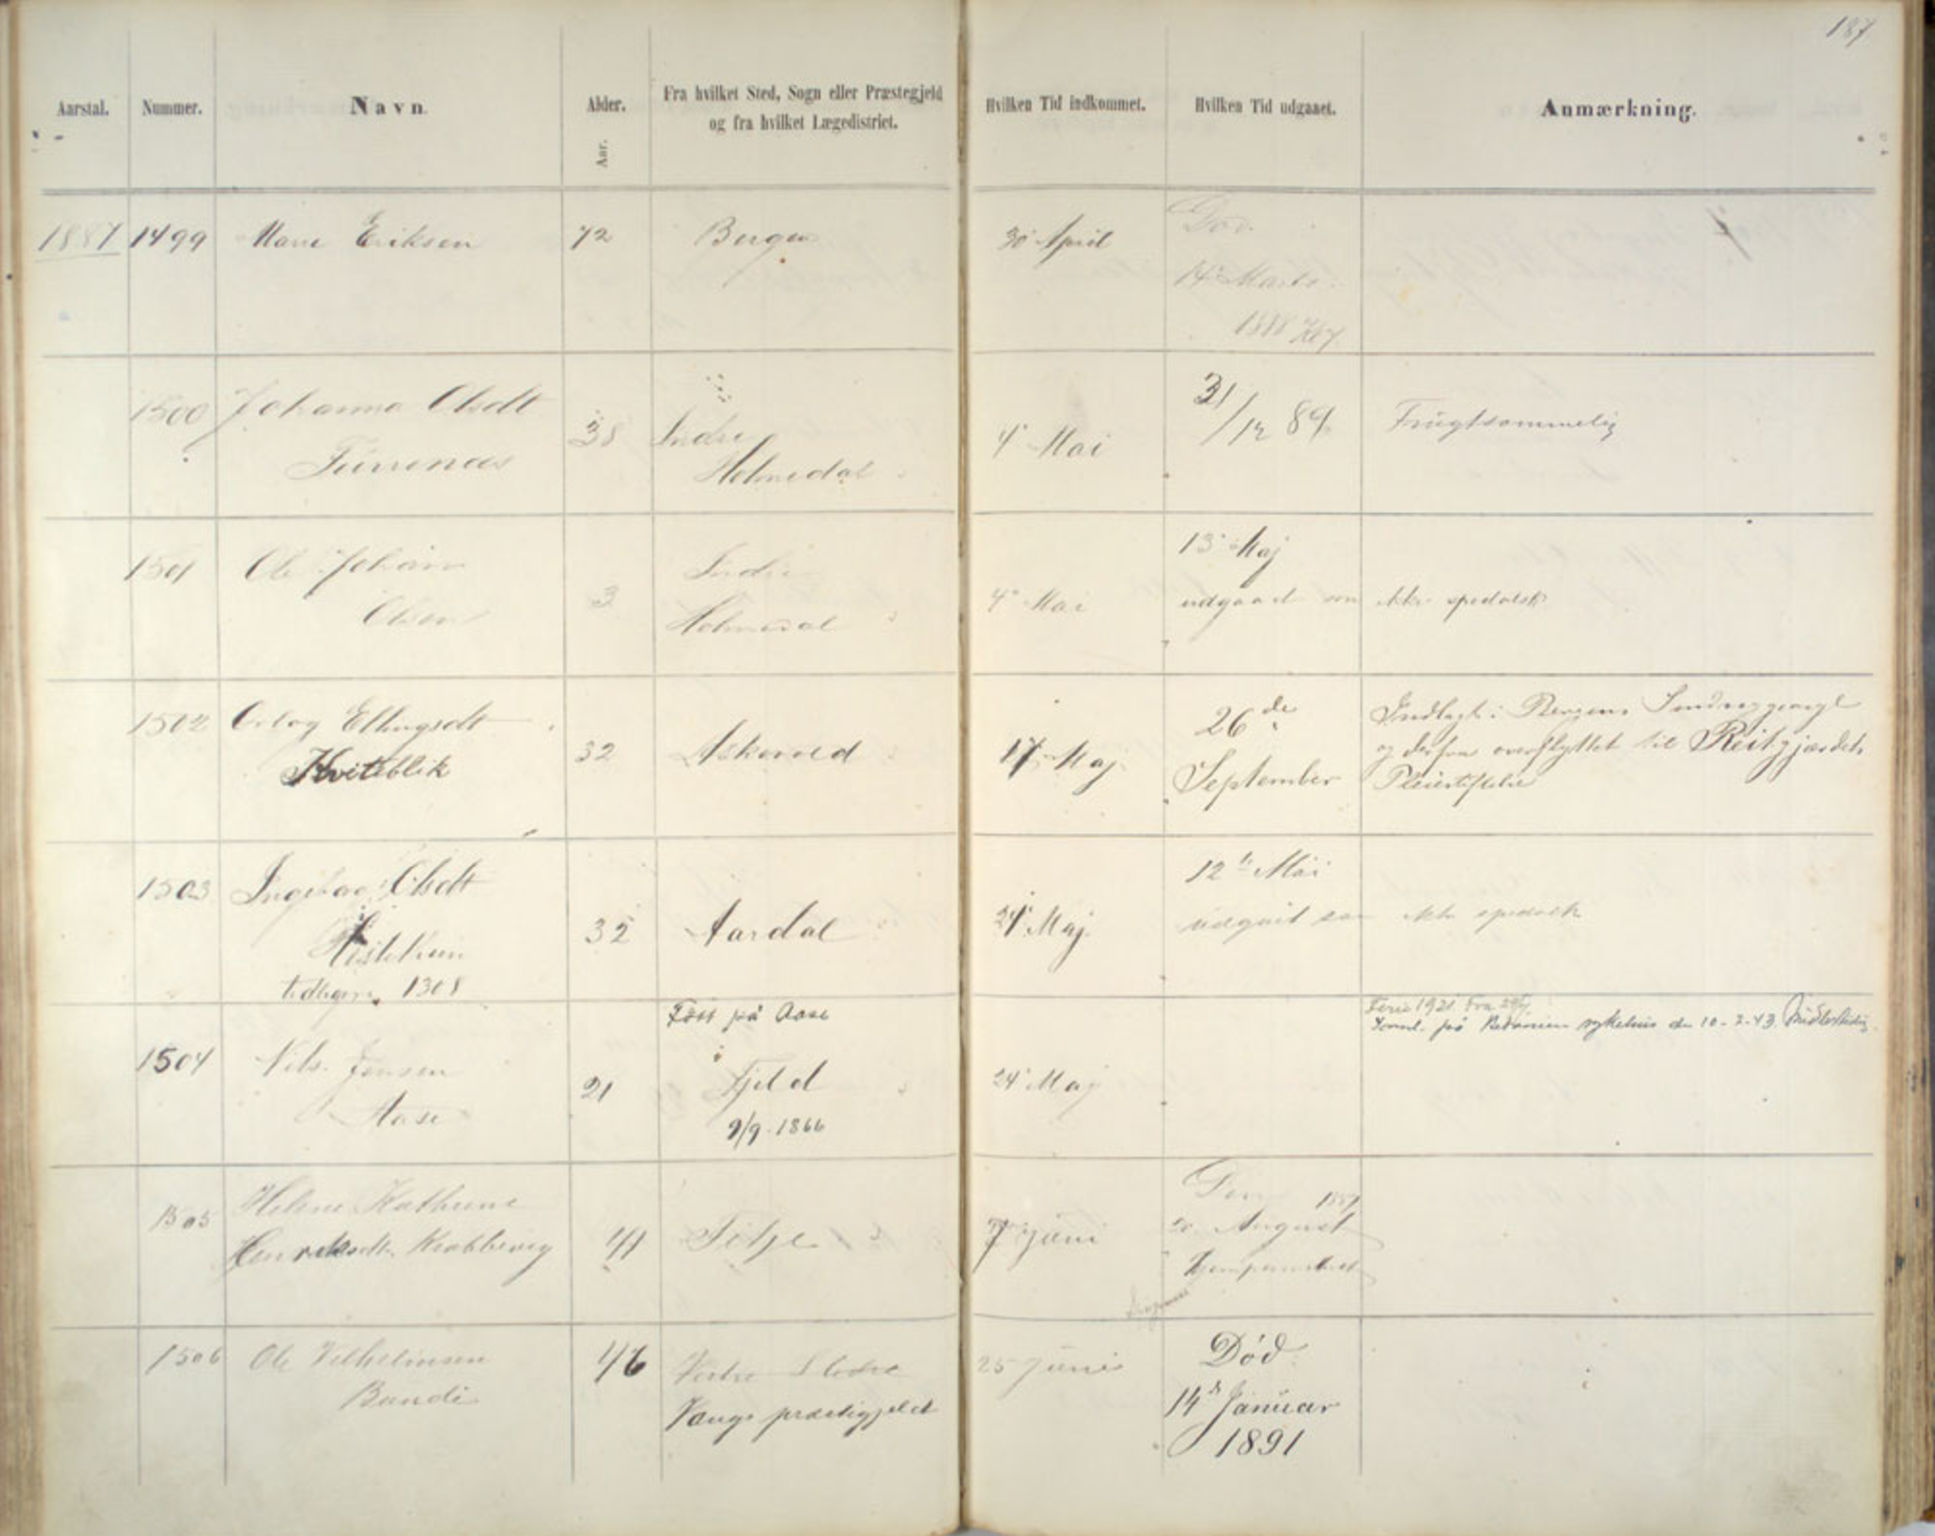 187
Aarstal. Nummer. Navn. Alder. Aar. Fra hvilket Sted, Sogn eller Præstegjeld
og fra hvilket Lægedistrict.
Hvilken Tid indkommet. Hvilken Tid udgaaet. Anmærkning.
1887 1499 Marie Eriksen 72 Bergen 30 April Død
14 Marts
1888
1500 Johanna Olsdt 38 Indre
Holmedal 4 Mai 31/12 89. Frugtsommelig
1501 Ole Johan
Olsen 3 Indre
Holmedal 4 Mai 13 Maj
udgaaet som ikke spedalsk
1502 Ellingsdt
Kviteblik 32 Askevold 17 Maj 26de
September Indlagt i Bergens Sindssygeasyl
og derfra overflyttet til Reitgjærdets
Pleiestiftelse
1503 Ingeborg Olsdt
tidligere 1308 32 Aardal 24 Maj 12te Mai
udgaaet som ikke spedalsk
1504 Nils Jensen
Aase 21 Født på Aase
Fjeld
9/9-1866 24 Maj
Ferie 1921. Fra
på Betanien sykehus den 10-3-43.
1505 Helene Kathrine
Henriksdt. Krabbevig 41 7 Juni 1887
20 August
1506 Ole Vilhelmsen
46 Vestre Slidre
Vangs præstegjeld 25 Juni Død
14de Januar
1891